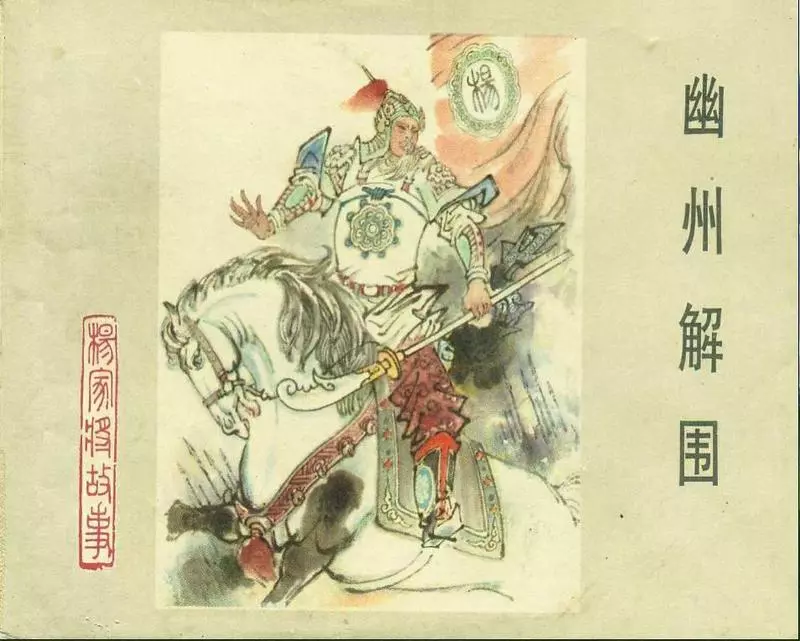 幽州解围
杨家将故事
楊